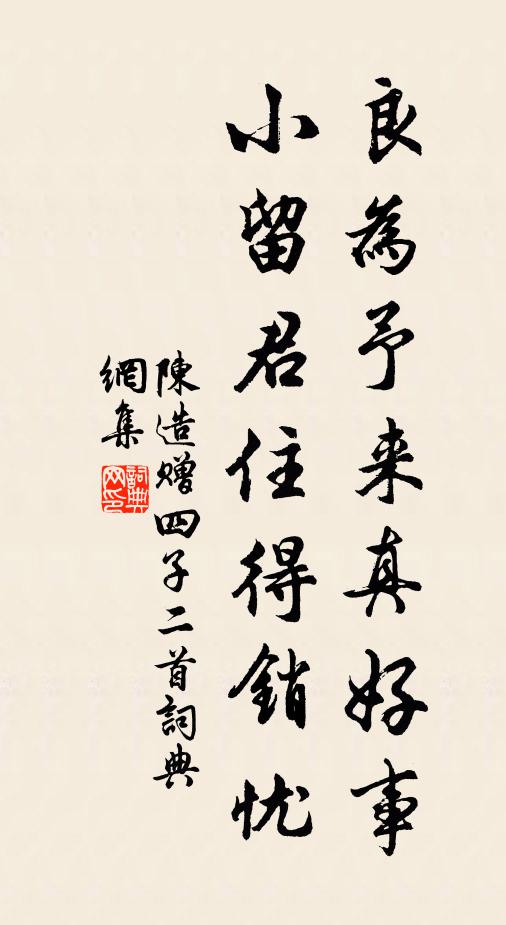 良為予来真好事
小留君住得銷忧
陳造贈四子二首詞典
網集
詞典網印